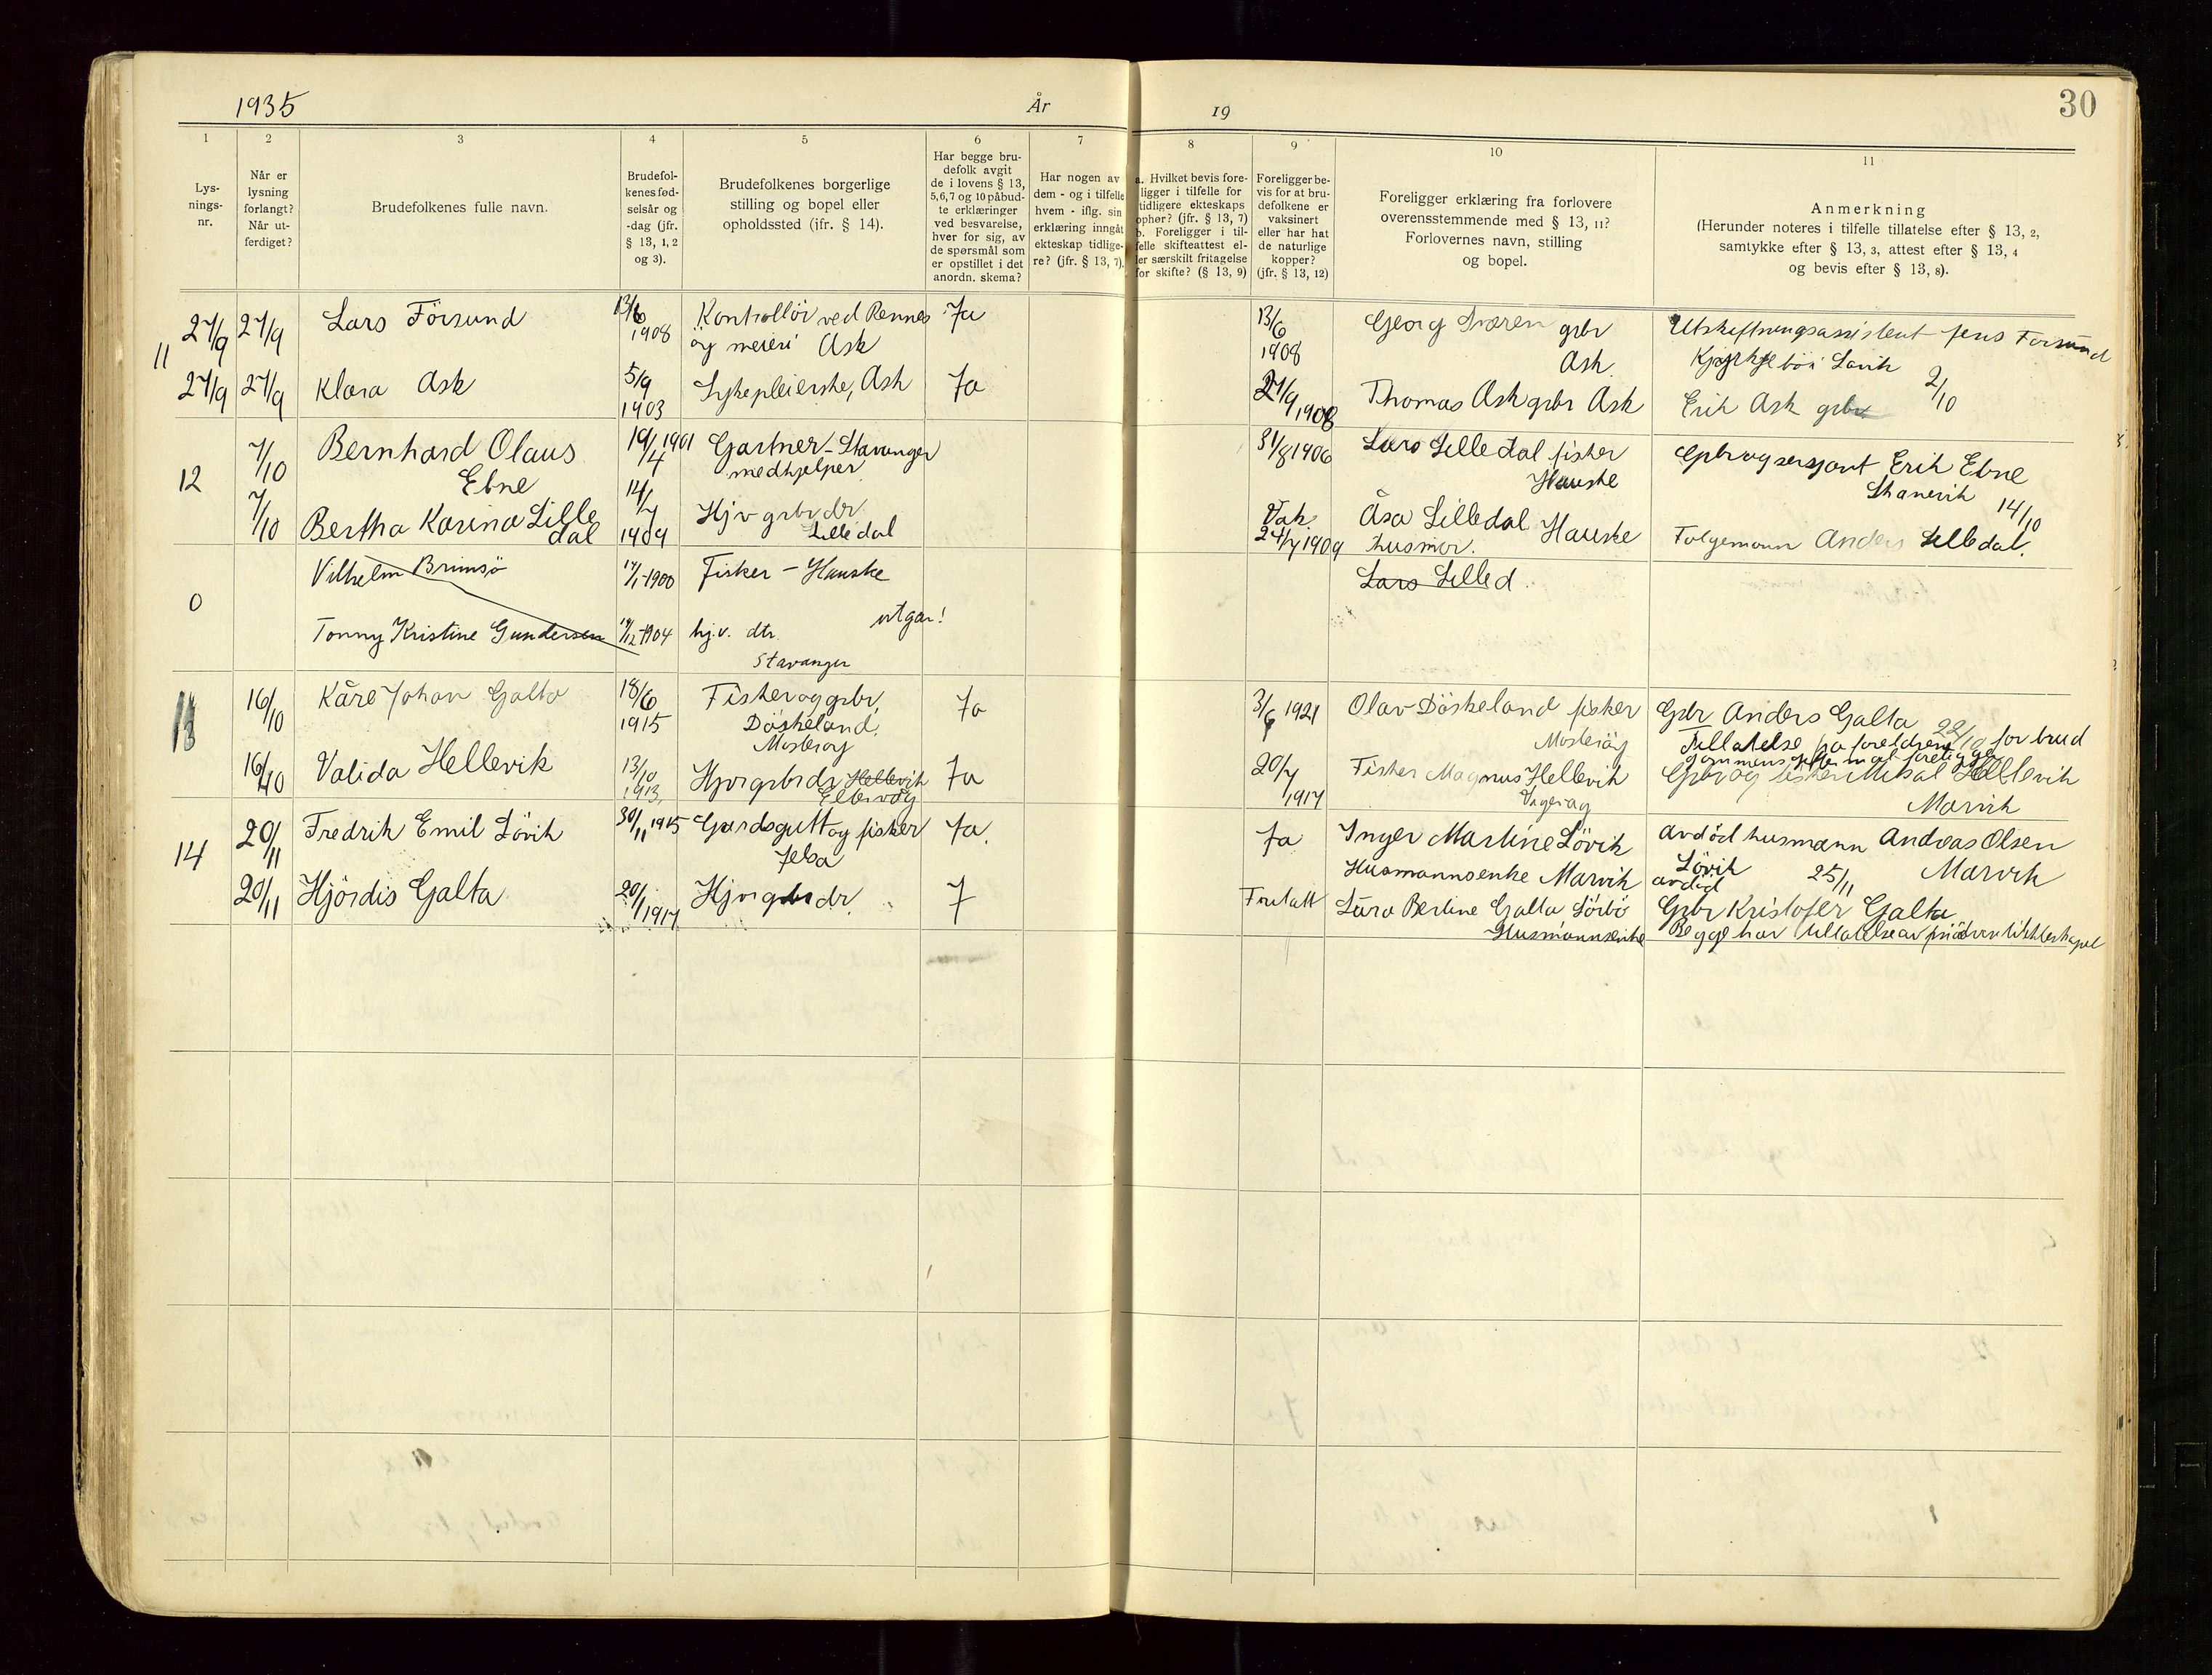 1935
År
19
30
1
2
3
4
5
6
7
8
9
10
11
Lys-
nings-
nr.
Når er
lysning
forlangt?
Når ut-
ferdiget?
Brudefolkenes fulle navn.
Brudefol-
kenes fød-
selsår og
-dag (jfr.
§ 13, 1, 2
og 3).
Brudefolkenes borgerlige
stilling og bopel eller
opholdssted (jfr. § 14).
Har begge bru-
defolk avgit
de i lovens § 13,
5,6,7 og 10 påbud-
te erklæringer
ved besvarelse,
hver for sig, av
de spørsmål som
er opstillet i det
anordn. skema?
Har nogen av
dem - og i tilfelle
hvem - iflg. sin
erklæring inngåt
ekteskap tidlige-
re? (jfr. § 13, 7).
a. Hvilket bevis fore-
ligger i tilfelle for
tidligere ekteskaps
ophør? (jfr. § 13, 7)
b. Foreligger i til-
felle skifteattest el-
ler særskilt fritagelse
for skifte? (§ 13, 9)
Foreligger be-
vis for at bru-
defolkene er
vaksinert
eller har hat
de naturlige
kopper?
(jfr. § 13, 12)
Foreligger erklæring fra forlovere
overensstemmende med § 13, 11?
Forlovernes navn, stilling
og bopel.
Anmerkning
(Herunder noteres i tilfelle tillatelse efter § 13, 2,
samtykke efter § 13, 3, attest efter § 13, 4
og bevis efter § 13, 8).
11
27/9 27/9 Lars Försund 13/6 1908 Kontrollör ved Rennes Ja
öy meieri Ask
13/6 1908 Georg gbr
Ask.
Utskiftningsassistent Jens Forsund
2/10
27/9 27/9 Klara Ask 5/9 1903 Sykepleierske, Ask Ja
27/9 1908 Thomas Ask gbr Ask
Erik Ask gbr
12
7/10 Bernhard Olaus
Ebne
19/4 1901 Gartner - Stavanger
medhjelper
31/8 1906 Lars Lilledal fisker
Hauske
Gbr og sersjant Erik Ebne
Skanevik 14/10
7/10 Bertha Karina Lille
dal
1909 Hjv gbr dr
Lilledal
Vak.
24/7 1909 Åsa Lilledal Hauske
husmor.
Folgemann Anders Lilledal.
0
Vilhelm Brimsö 1900 Fisker - Hauske
Lars Lilled
utgar!
Tonny Kristine Gundersen 1904 hj.v. dtr.
Stavanger
13
16/10 Kåre Johan Galta 18/6 1915 Fisker og gbr,
Döskeland,
Mosteröy
Ja
3/6 1921 Olav Döskeland fisker
Mosteröy
Gbr Anders Galta 22/10
Tillatelse fra foreldrene for brud
gommens giftermal foreligger
16/10 Valida Hellevik 13/10 1913, Hjvgbrdr Hellevik
Ja
20/7 1917 Fisker Magnus Hellevik
Gbr og fisker Mikal Hellevik
Marvik
14
20/11 Fredrik Emil Lövik 30/11 1915 Gardsgutt og fisker
Jelsa
Ja.
Ja Inger Martine Lövik
Husmannsenke Marvik
avdöd husmann Andreas Olsen
Lövik 25/11 Marvik
20/11 Hjördis Galta 20/1 1917 Hjvgbrdr. J
Fritatt Lara Berline Galta Sörbö
Husmannsenke
avdöd
Gbr Kristofer Galta
Begge har tillatelse av